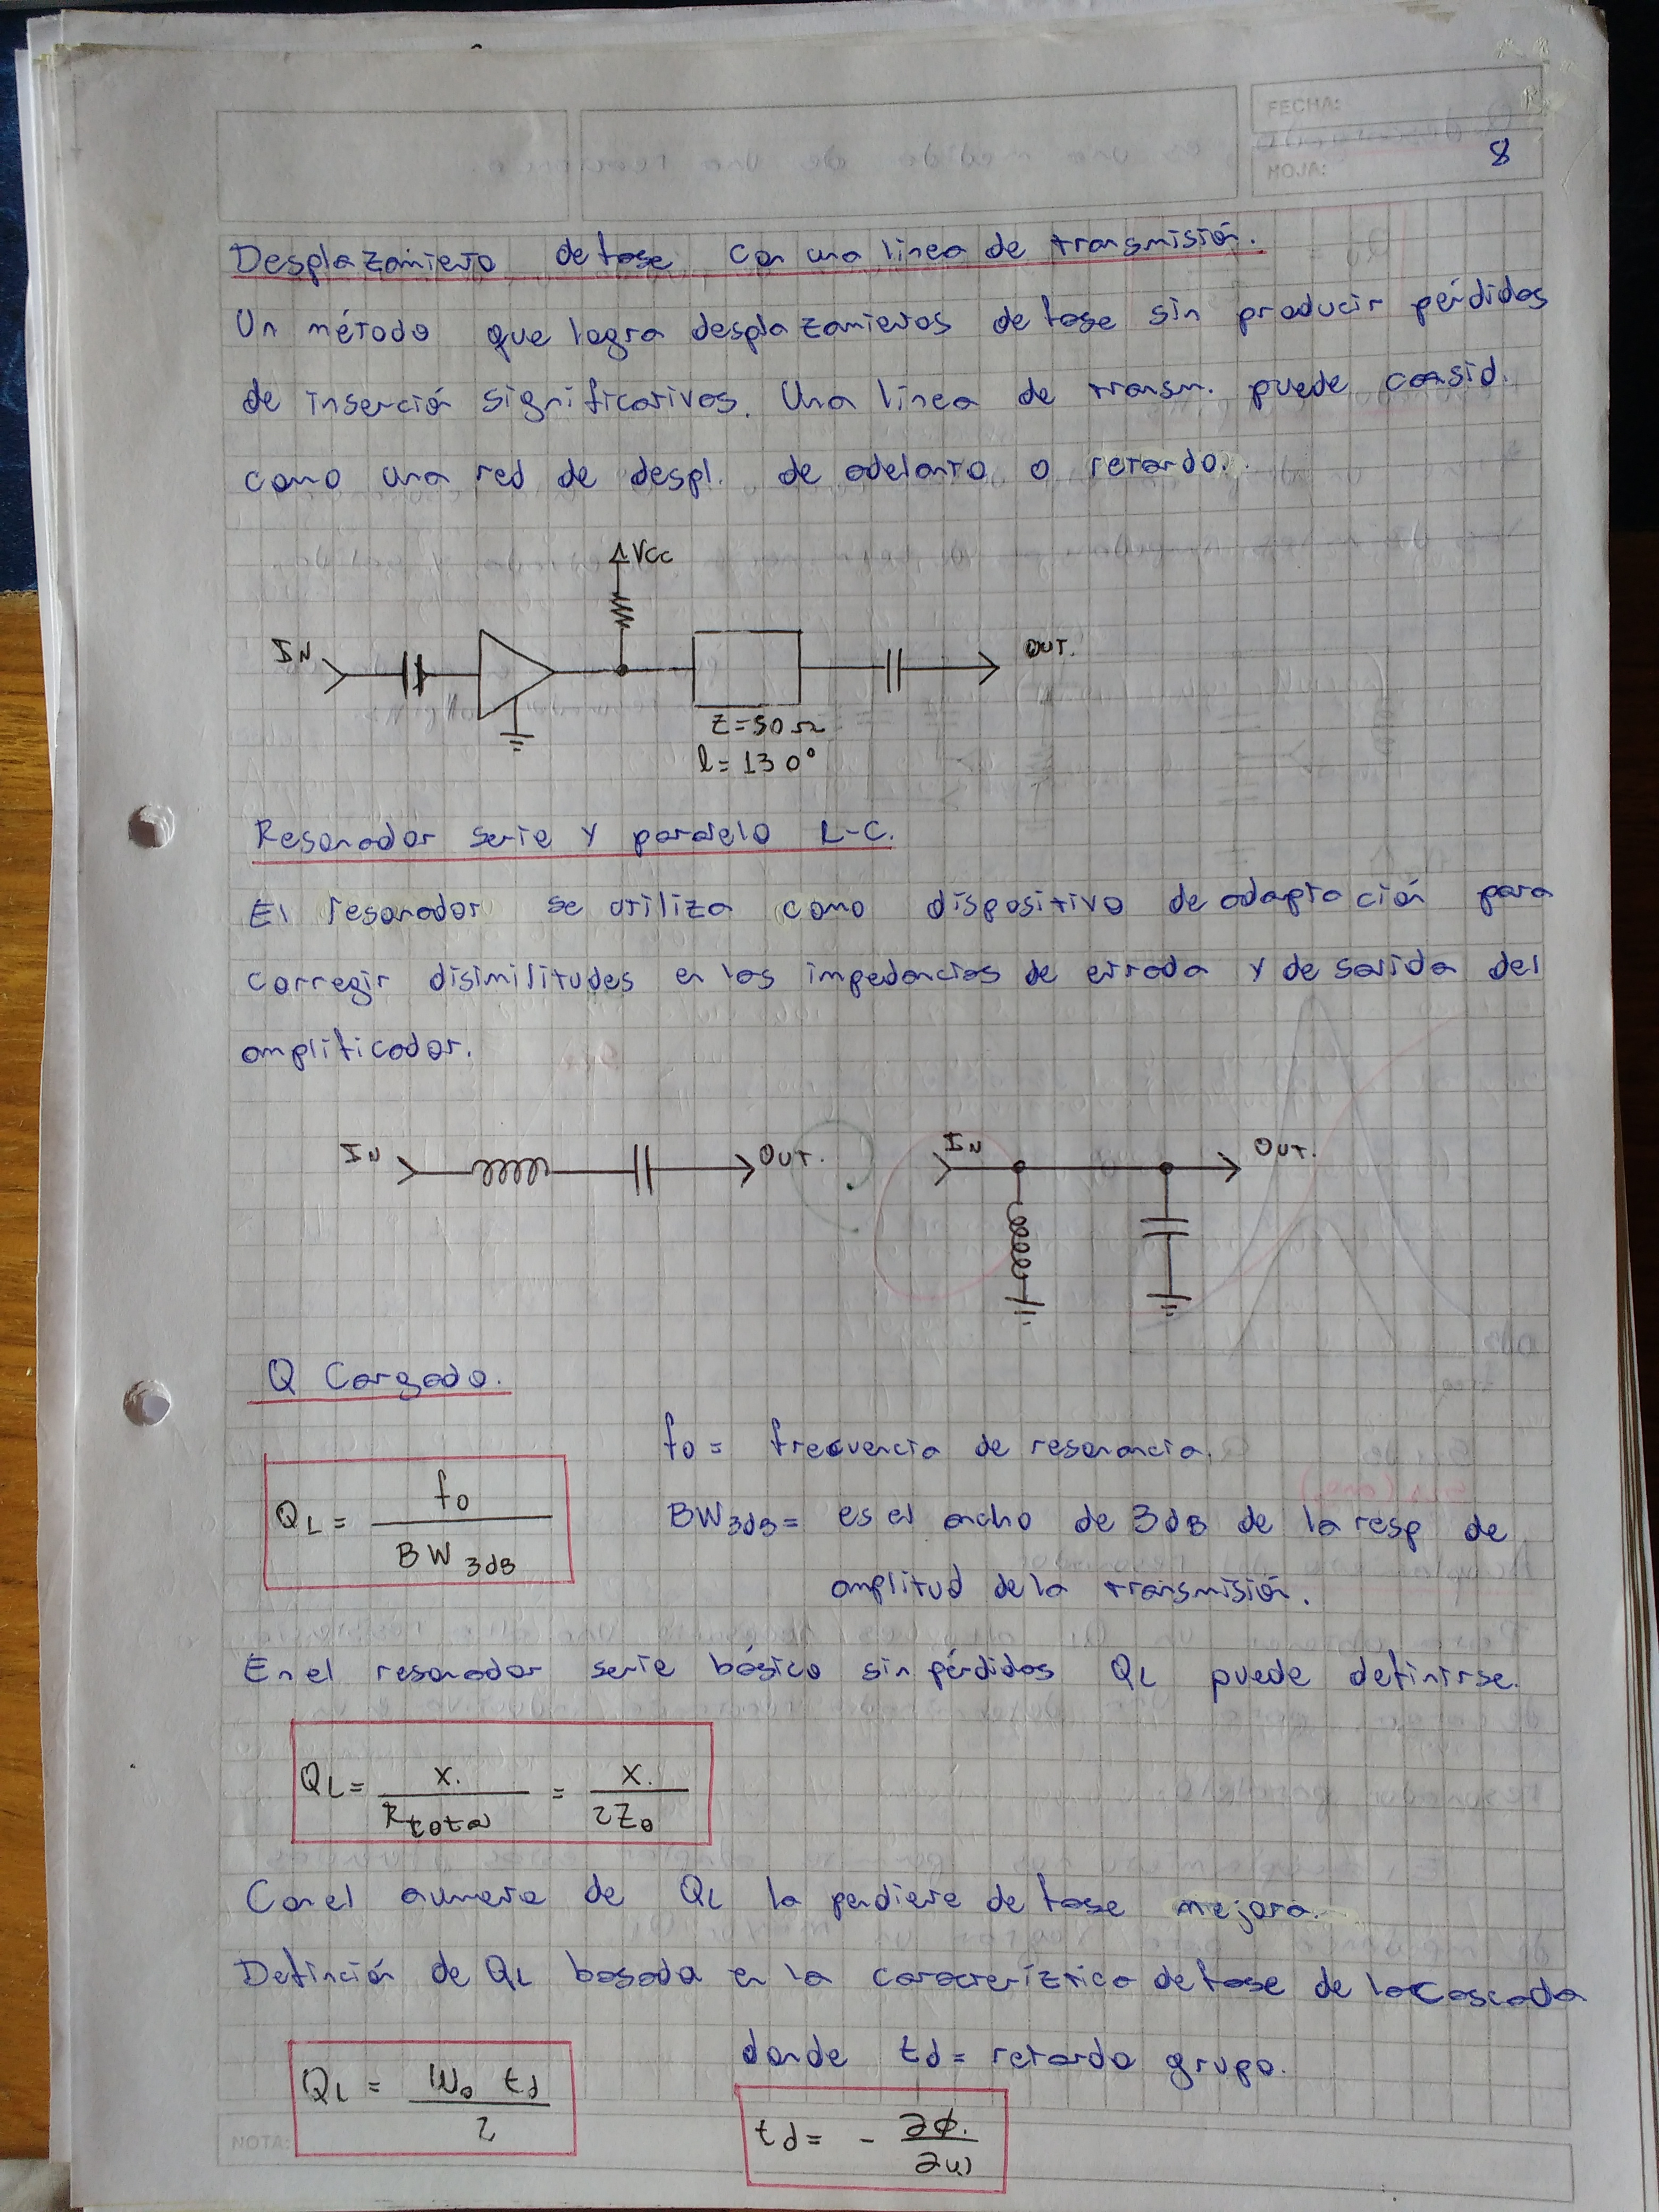 FECHA:
HOJA: 8
Desplazamiento de fase con una linea de transmisión.
Un método que logra desplazamientos de fase sin producir pérdidas
de inserción significativas. Una linea de transm. puede consid.
como una red de despl. de adelanto o retardo.
VCC
IN
OUT.
Z=50Ω
l=130°
Resonador serie y paralelo L-C.
El resonador se utiliza como dispositivo de adaptación para
corregir disimilitudes en las impedancias de entrada y de salida del
amplificador.
IN OUT. IN OUT.
Q Cargado.
f0 = frecuencia de resonancia.
QL = f0 / BW 3dB
BW3dB = es el ancho de 3dB de la resp de
amplitud de la transmisión.
En el resonador serie básico sin pérdidas QL puede definirse.
QL = X. / Rtotal = X. / 2Z0
Con el aumento de QL la pendiente de fase mejora.
Definción de QL basada en la caracteríztica de fase de la cascada
donde td = retardo grupo.
QL = W0 td / 2
td = - ∂ϕ. / ∂ω
NOTA: